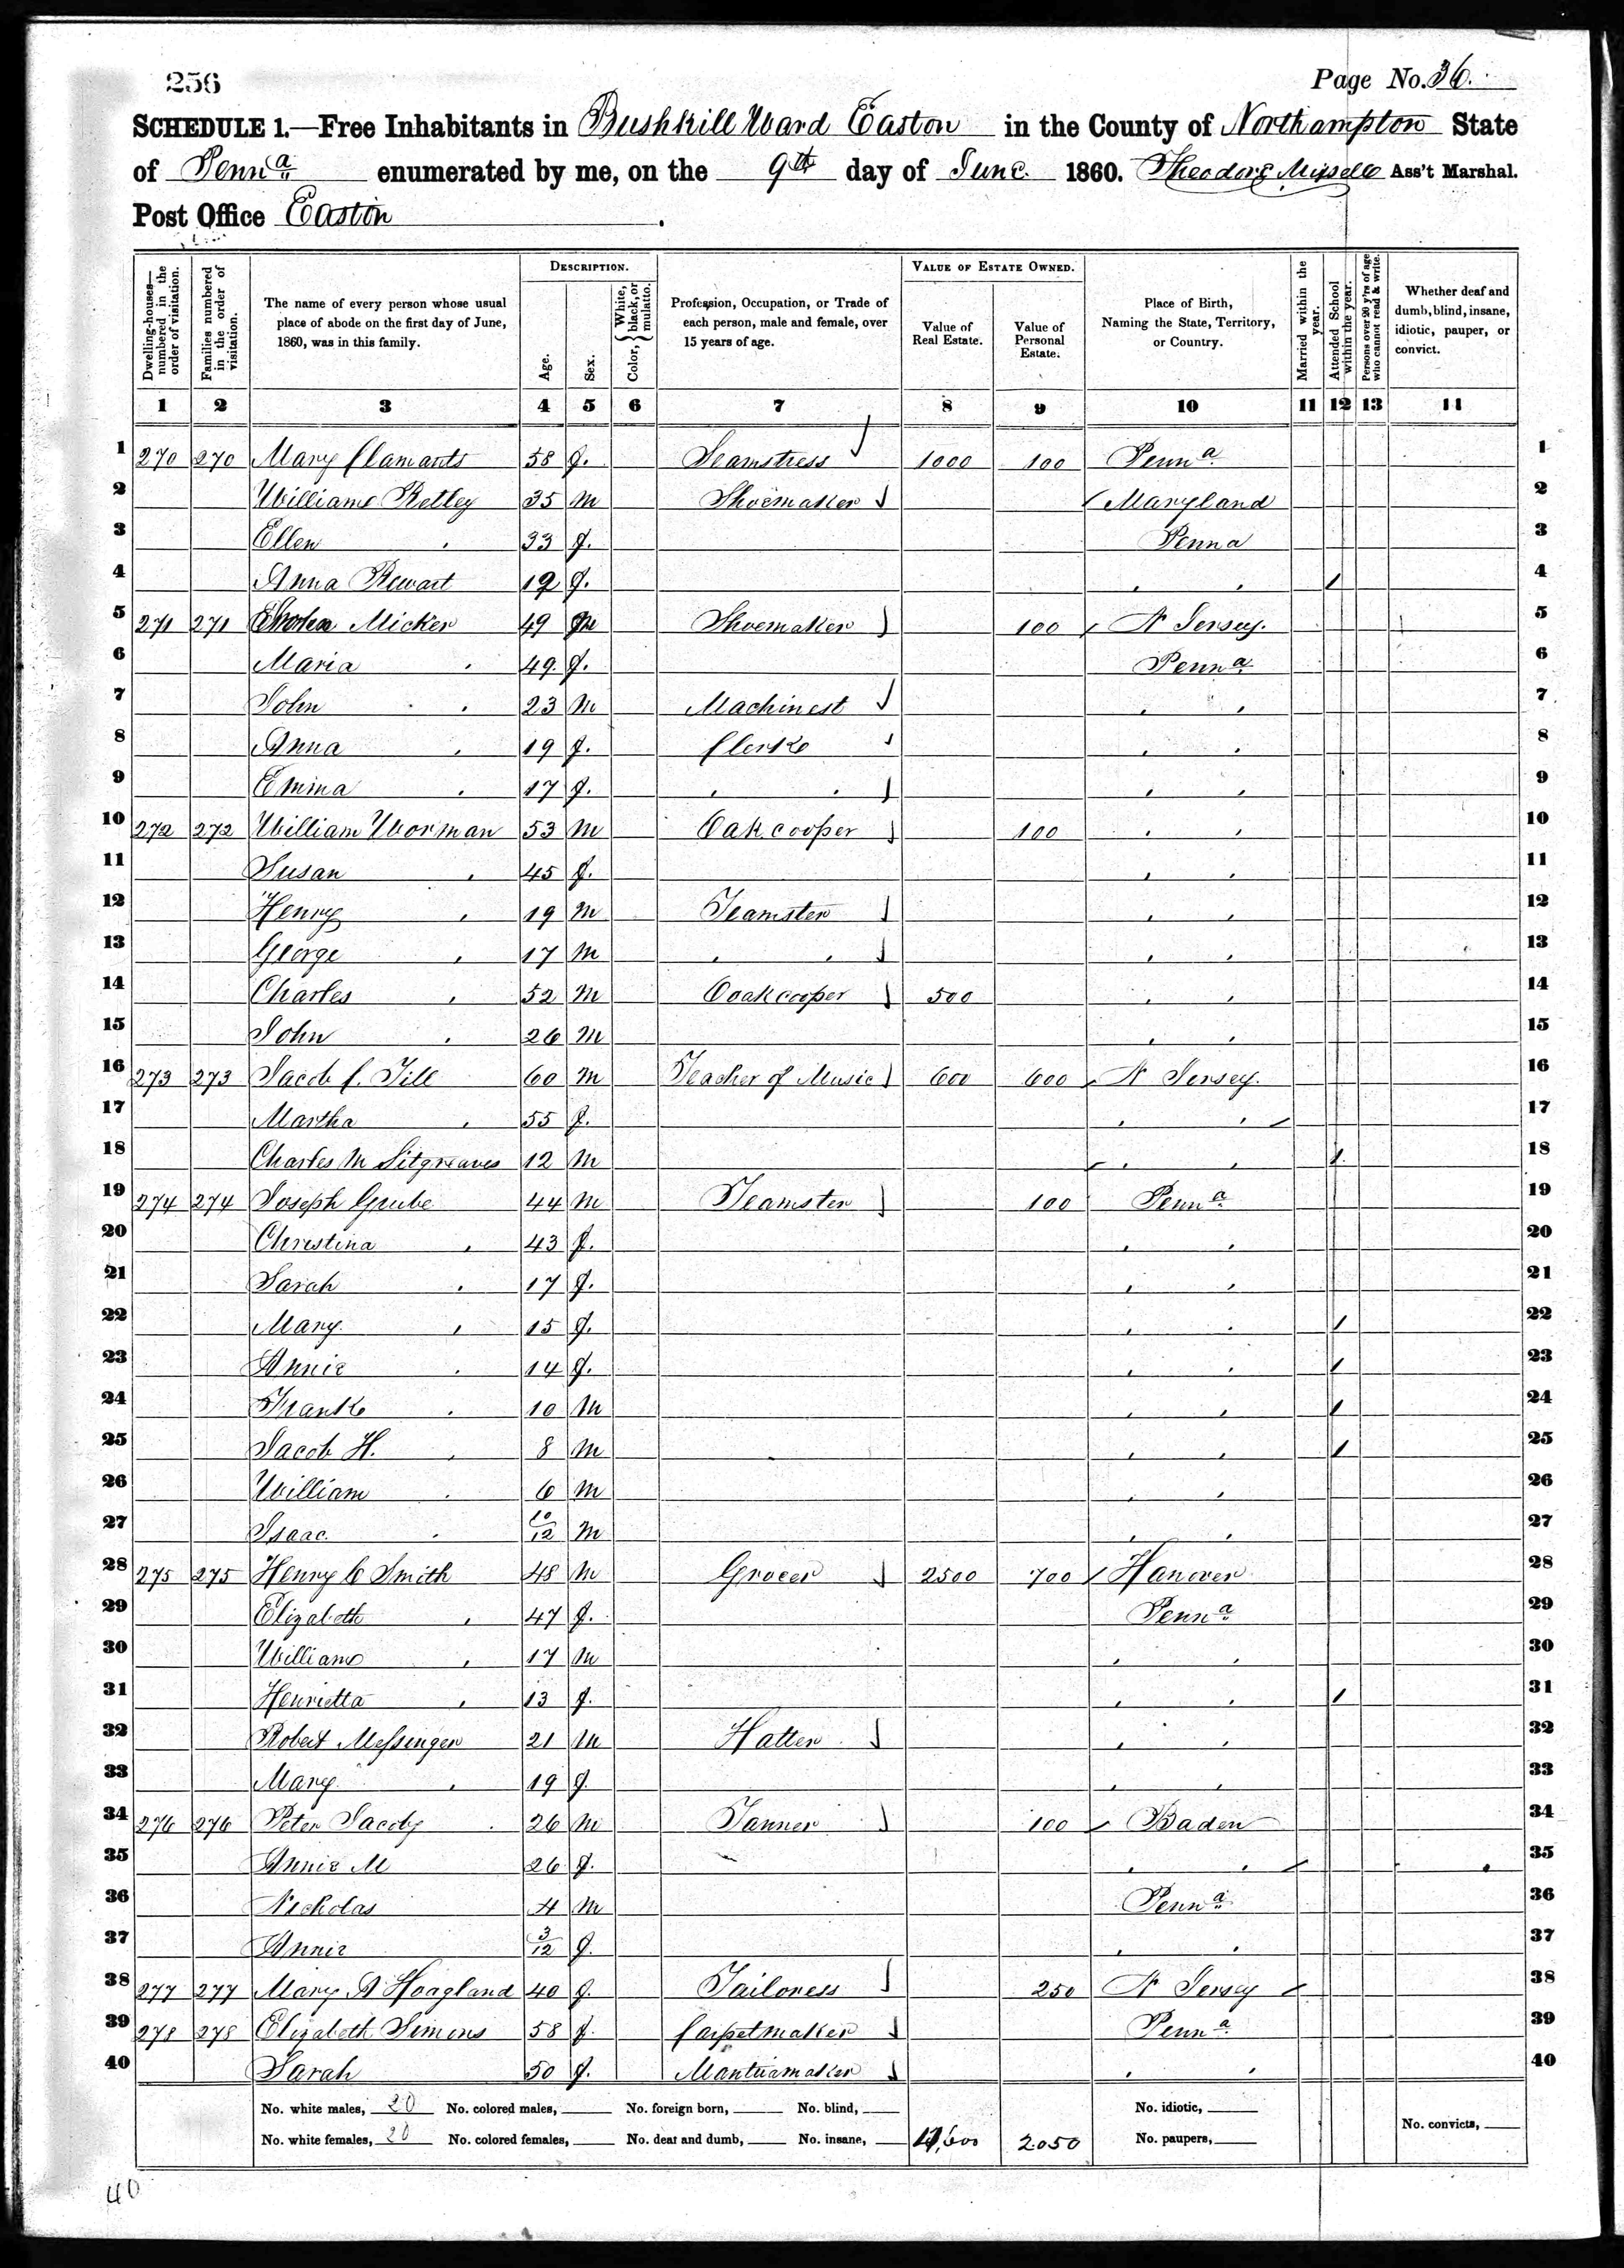 256
Page No. 36.
SCHEDULE 1.—Free Inhabitants in Bushkill Ward Easton in the County of Northampton State
of Penna enumerated by me, on the 9th day of June. 1860. Theodore Ass't Marshal.
Post Office Easton.
Dwelling-houses—numbered in the order of visitation.
Families numbered in the order of visitation.
The name of every person whose usual place of abode on the first day of June, 1860, was in this family.
DESCRIPTION.
Age.
Sex.
Color, { White, black, or mulatto.
Profession, Occupation, or Trade of each person, male and female, over 15 years of age.
VALUE OF ESTATE OWNED.
Value of Real Estate.
Value of Personal Estate.
Place of Birth, Naming the State, Territory, or Country.
Married within the year.
Attended School within the year.
Persons over 20 y'rs of age who cannot read & write.
Whether deaf and dumb, blind, insane, idiotic, pauper, or convict.
1 2 3 4 5 6 7 8 9 10 11 12 13 14
1 270 270 Mary Clamants 58 f. Seamstress 1000 100 Penna 1
2 William Kelley 35 m Shoemaker Maryland 2
3 Ellen " 33 f. Penna 3
4 Anna Stewart 12 f. " " / 4
5 271 271 Micker 49 m Shoemaker 100 N Jersey. 5
6 Maria " 49. f. Penna 6
7 John " 23 m Machinest " " 7
8 Anna " 19 f. Clerk " " 8
9 Emma " 17 f. " " " " 9
10 272 272 William Worman 53 m Oak cooper 100 " " 10
11 Susan " 45 f. " " 11
12 Henry " 19 m Teamster " " 12
13 George " 17 m " " " " 13
14 Charles " 52 m Ooak cooper 500 " " 14
15 John " 26 m " " 15
16 273 273 Jacob C. Till 60 m Teacher of Music 600 600 N Jersey. 16
17 Martha " 55 f. " " 17
18 Charles M Sitgreaves 12 m " " / 18
19 274 274 Joseph Grube 44 m Teamster 100 Penna 19
20 Christina " 43 f. " " 20
21 Sarah " 17 f. " " 21
22 Mary. " 15 f. " " / 22
23 Annie " 14 f. " " / 23
24 Frank " 10 m " " / 24
25 Jacob H. " 8 m " " / 25
26 William " 6 m " " 26
27 Isaac. " 10/12 m " " 27
28 275 275 Henry C Smith 48 m Grocer 2500 700 Hanover 28
29 Elizabeth " 47 f. Penna 29
30 William " 17 m " " 30
31 Henrietta " 13 f. " " / 31
32 Robert Messinger 21 m Hatter " " 32
33 Mary. " 19 f. " " 33
34 276 276 Peter Jacoby 26 m Tanner 100 Baden 34
35 Annie M 26 f. " " 35
36 Nicholas 4 m Penna 36
37 Annie 3/12 f. " " 37
38 277 277 Mary A Hoagland 40 f. Tailoress 250 N Jersey 38
39 278 278 Elizabeth Simons 58 f. Carpetmaker Penna 39
40 Sarah 50 f. Mantuamaker " " 40
No. white males, 20 No. colored males, No. foreign born, No. blind, No. idiotic,
No. white females, 20 No. colored females, No. deaf and dumb, No. insane, 4,600 2050 No. paupers, No. convicts,
40